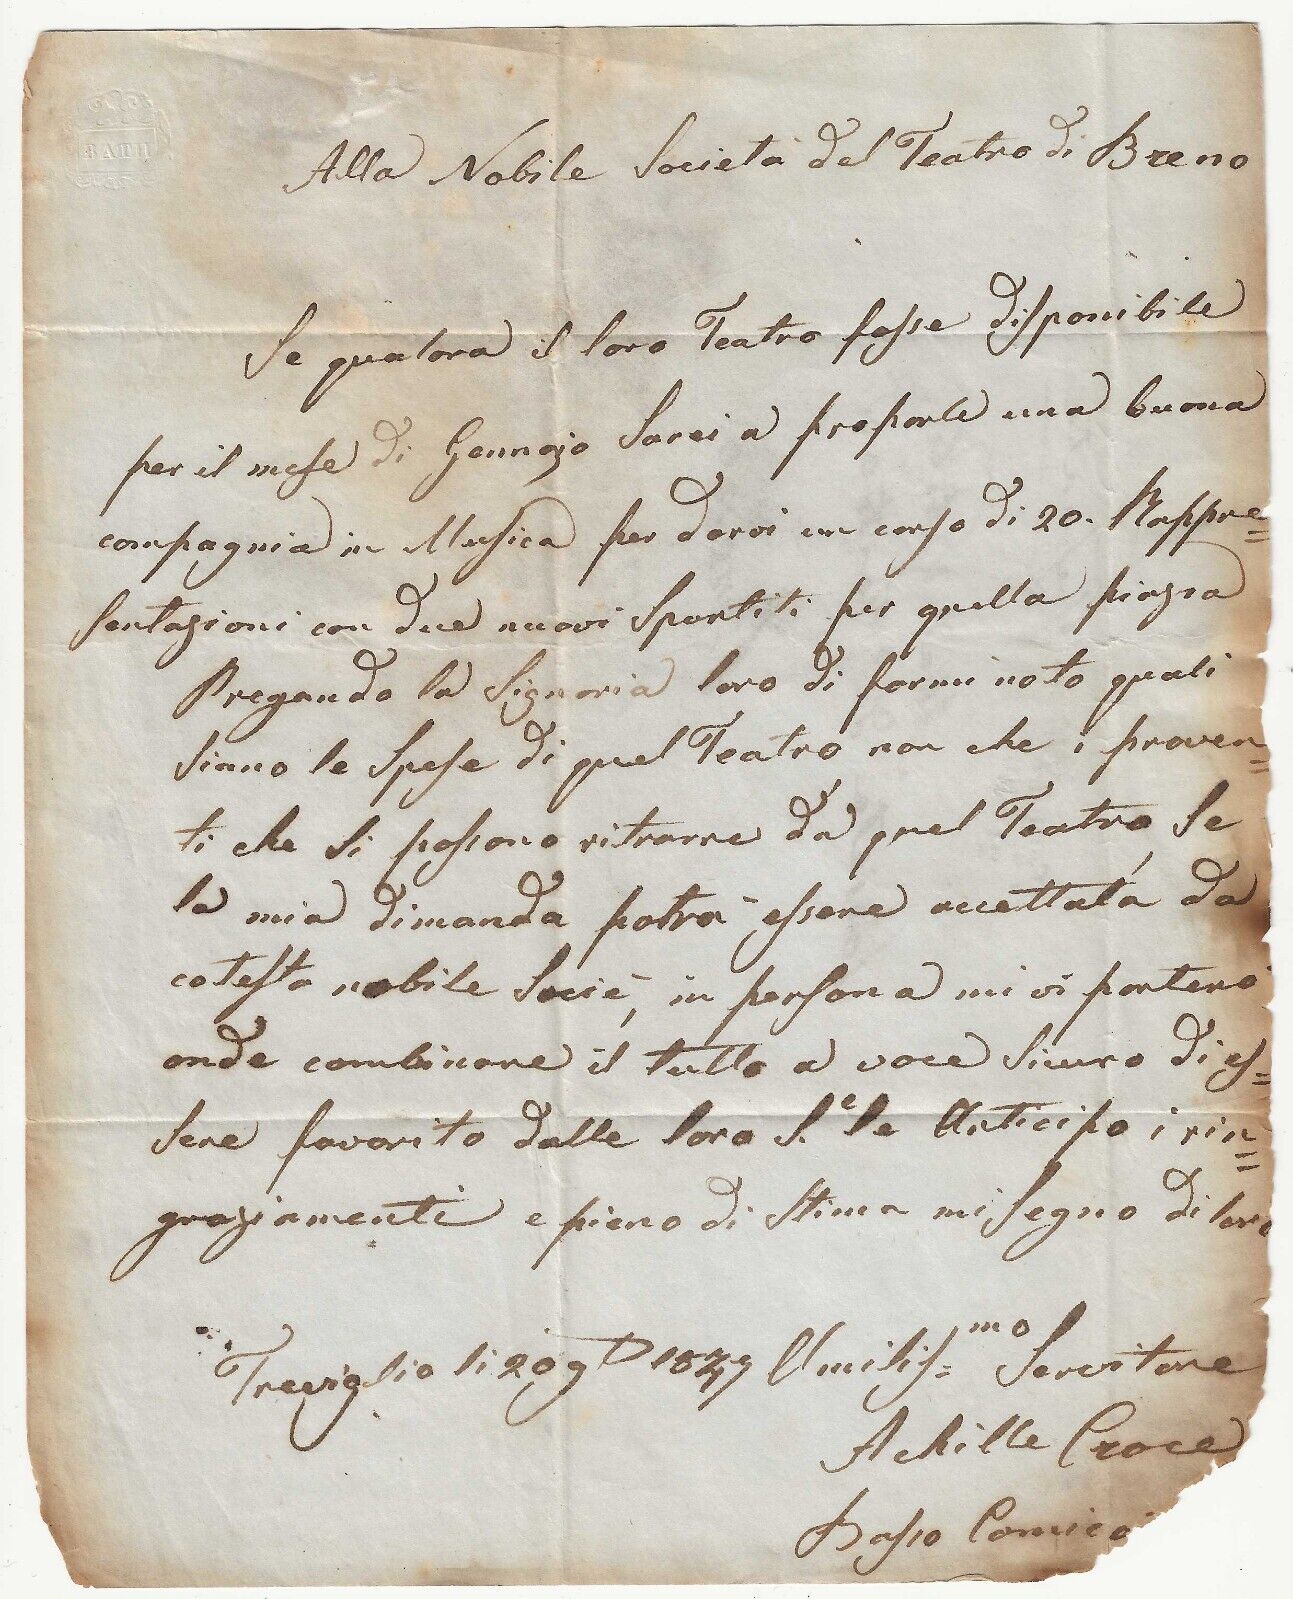 Alla Nobile Società del Teatro di Breno
Se qualora il loro Teatro fosse disponibile
per il mese di Gennajo Sarei a proporle una buona
compagnia in Musica per darvi un corso di 20. Rappre=
sentazioni con due nuovi Spartiti per quella piazza
Pregando la Signoria loro di farmi noto quali
siano le Spese di quel Teatro non che i proven=
ti che Si possono ritrarre da quel Teatro, Se
la mia dimanda potrà essere accettata da
cotesta nobile Socie, in persona mi vi porterò
onde combinare il tutto a voce Sicuro di es=
sere favorito dalle loro S.e le Anticipo i rin=
graziamenti e pieno di Stima mi Segno di loro
Treviglio li 20 Umilis=mo Servitore
Achille Croce
Basso Comico